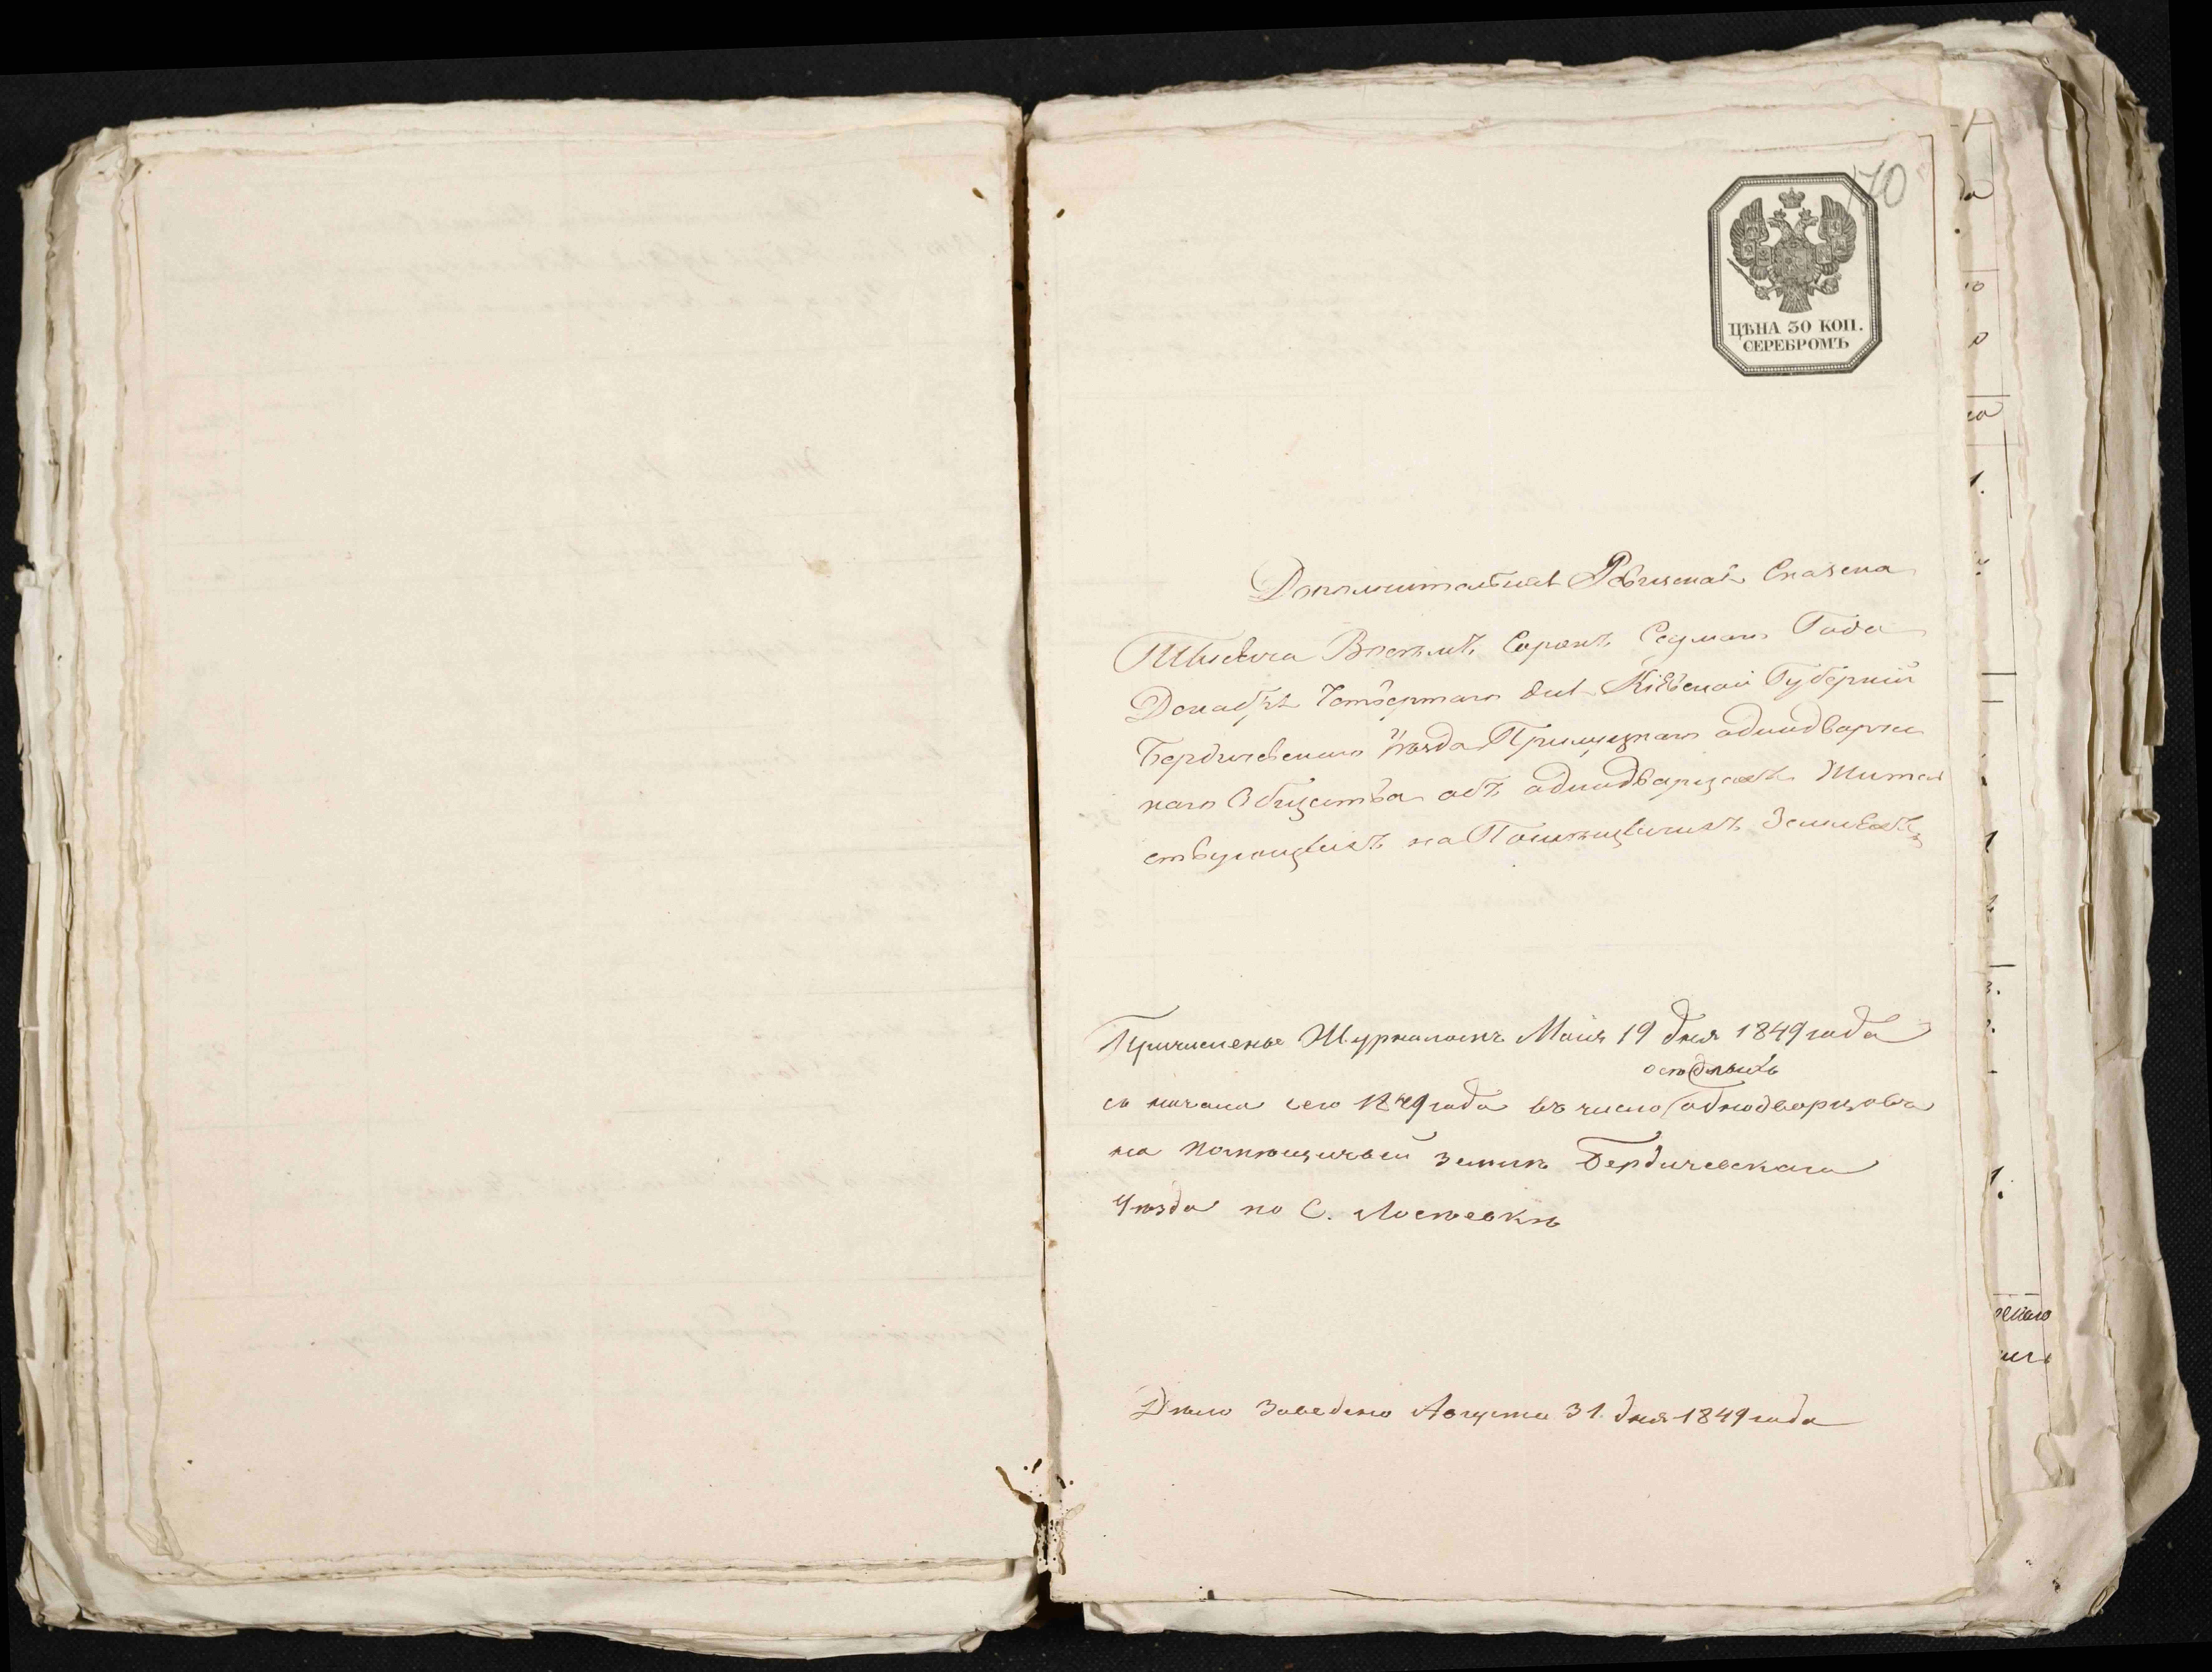 170
ЦѢНА 30 КОП.
СЕРЕБРОМЪ
Дополнительная Ревизская Сказка
Тысяча Восемъ Сорокъ Седмаго Года
Декабря Четвертаго дня Кіевской Губерній
Бердичевскаго Уѣзда однодворче
скаго Общества объ однодворцахъ Житель
ствующихъ на Помѣщичихъ Земляхъ
Причислены Журналомъ Маія 19 дня 1849 года
осѣдлыхъ
съ начала сего 1849 года въ число однодворцовъ
на помѣщичьей землѣ Бердичевскаго
Уѣзда по С.
Дѣло Заведено Августа 31 дня 1849 года